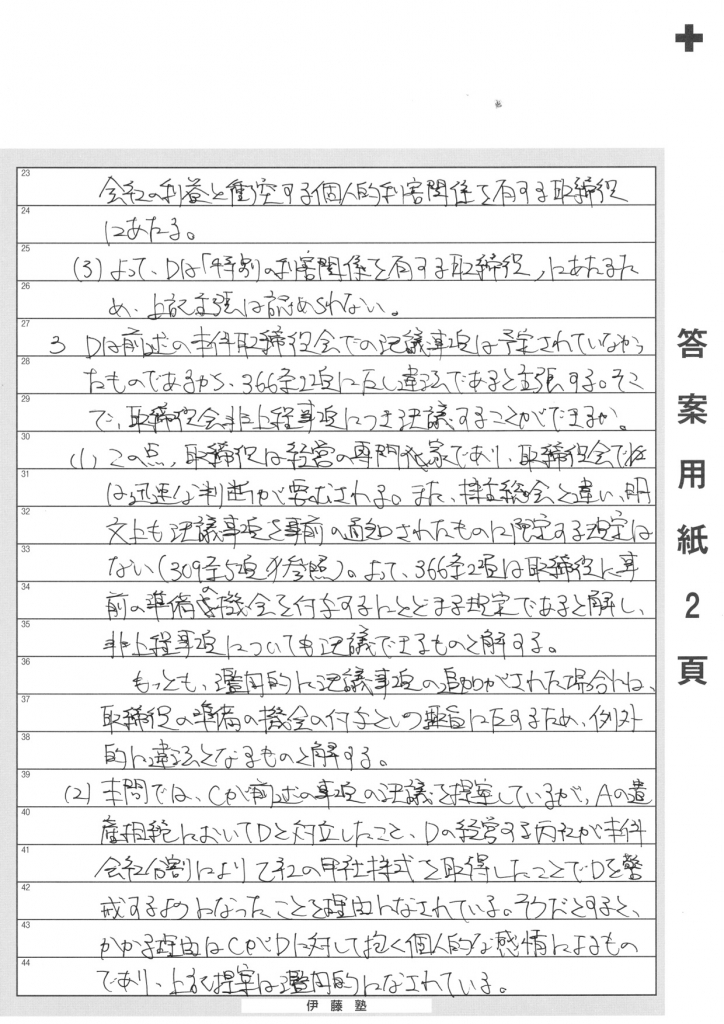 23
会社の利益と衝突する個人的利害関係を有する取締役
24
にあたる。
25
(3) よって、Dは「特別の利害関係を有する取締役」にあたるた
26
め、上記主張は認められない。
27
3 Dは前述の本件取締役会での決議事項は予定されていなかっ
28
たものであるから、366条2項に反し違法であると主張する。そこ
29
で、取締役会非上程事項につき決議することができるか。
30
(1) この点、取締役は経営の専門家であり、取締役会では
31
は迅速な判断が要求される。また、株主総会と違い、明
32
文上も決議事項を事前の通知されたものに限定する規定は
33
ない(309条5項参照)。よって、366条2項は取締役に事
34
前の準備の機会を付与するにとどまる規定であると解し、
35
非上程事項についても決議できるものと解する。
36
もっとも、濫用的に決議事項の追加がされた場合には、
37
取締役の準備の機会の付与という趣旨に反するため、例外
38
的に違法となるものと解する。
39
(2) 本問では、Cが前述の事項の決議を提案しているが、Aの遺
40
産相続においてDと対立したこと、Dの経営する丙社が本件
41
会社分割により乙社の甲社株式を取得したことでDを警
42
戒するようになったことを理由になされている。そうだとすると、
43
かかる理由はCがDに対して抱く個人的な感情によるもの
44
であり、上記提案は濫用的になされている。
伊藤塾
答案用紙2頁